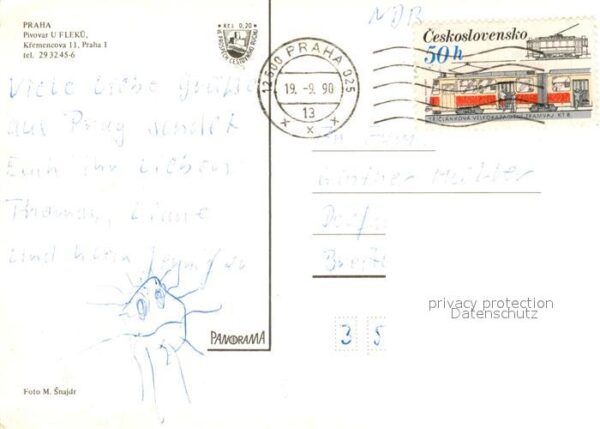 PRAHA
Pivovar U FLEKŮ,
Křemencova 11, Praha 1
tel. 29 32 45-6
Kčs 0,20
NDR
Československo
50 h
TŘÍČLÁNKOVÁ VELKOKAPACITNÍ TRAMVAJ, KT 8
12600 PRAHA 025
19.-9.90
13
Viele liebe Grüße
aus Prag sendet
Euch ihr lieben
Thomas,
und klein
Günther Müller
privacy protection
Datenschutz
3 5
PANORAMA
Foto M. Šnajdr